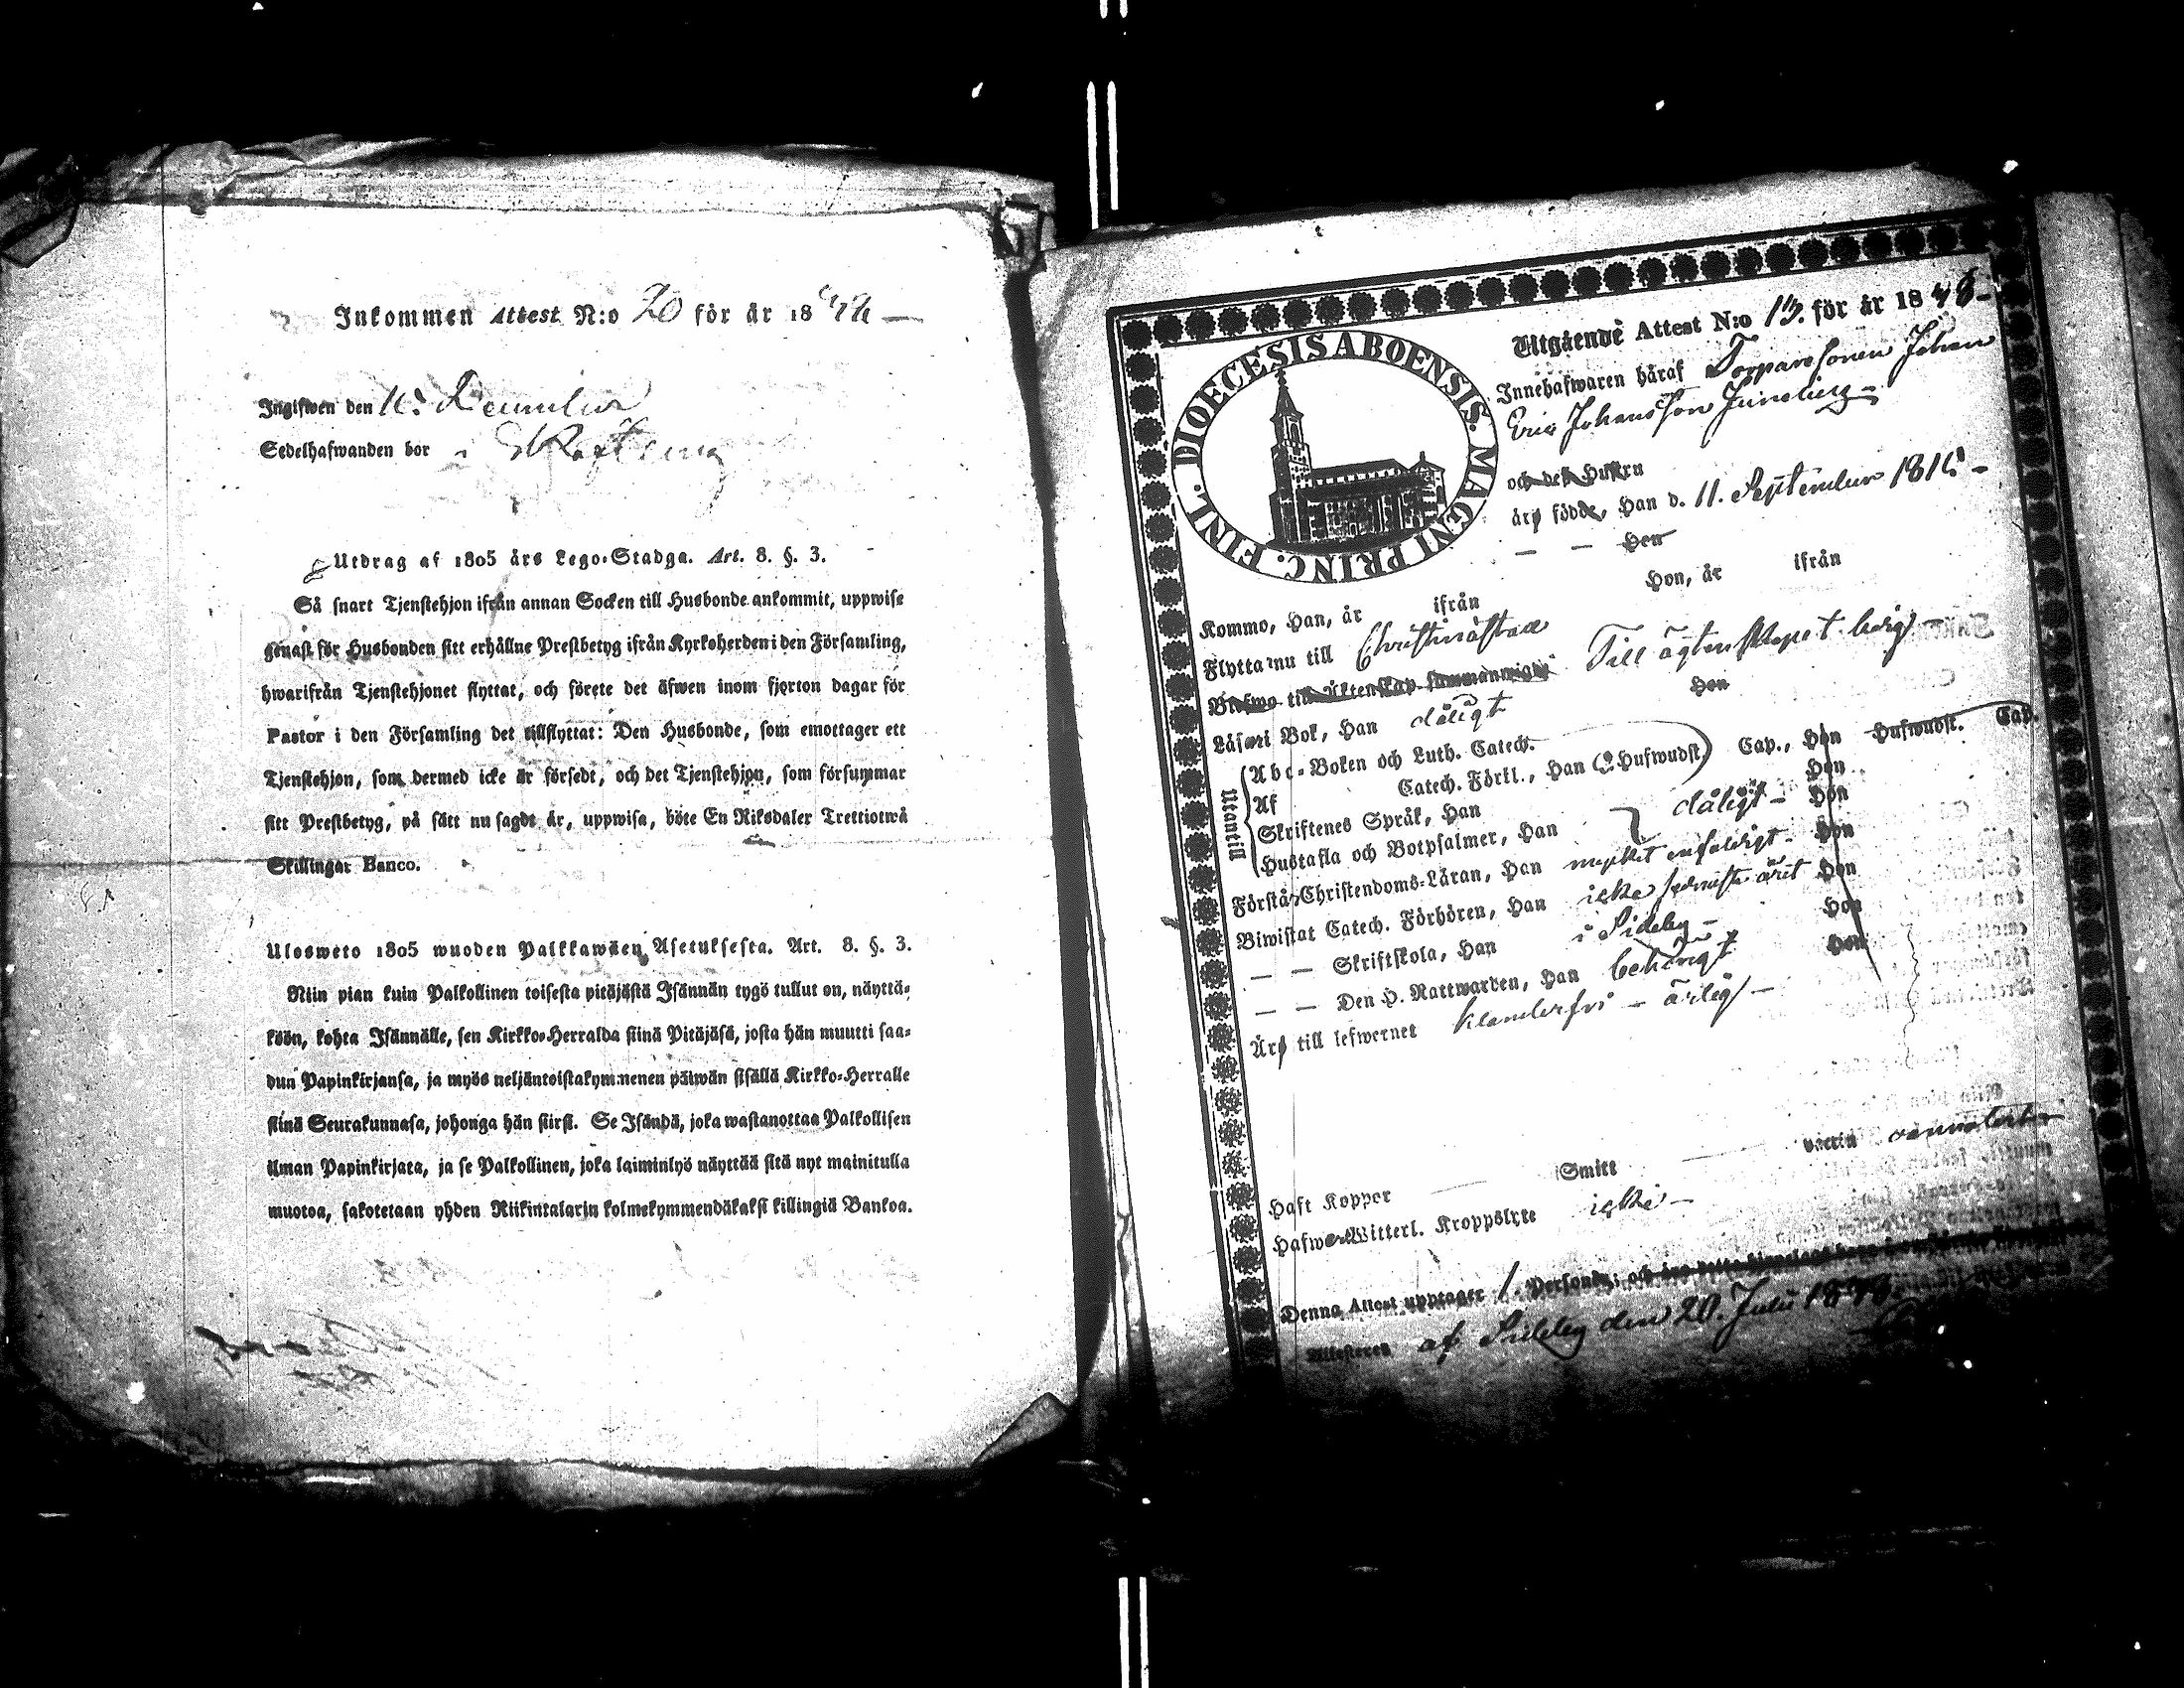 Inkommen Attest N:o 20 för år 18
Ingifwen den
Sedelhafwanden bor i
Utdrag af 1805 års Lego-Stadga. Art. 8. §. 3.
Så snart Tjenstehjon ifrån annan Socken till Husbonde ankommit, uppwise
genast för Husbonden sitt erhållne Prestbetyg ifrån Kyrkoherden i den Församling,
hwarifrån Tjenstehjonet flyttat, och förete det äfwen inom fjorton dagar för
Pastor i den Församling det tillflyttat: Den Husbonde, som emottager ett
Tjenstehjon, som dermed icke är försedt, och det Tjenstehjon, som försummar
sitt Prestbetyg, på sätt nu sagdt är, uppwisa, böte En Riksdaler Trettiotwå
Skillingar Banco.
Ulosweto 1805 wuoden Palkkawäen Asetuksesta. Art. 8. §. 3.
Niin pian kuin Palkollinen toisesta pitäjästä Isännän tygö tullut on, näyttä-
köön, kohta Isännälle, sen Kirkko-Herralda siinä Pitäjäsä, josta hän muutti saa-
dun Papinkirjansa, ja myös neljäntoistakymmenen päiwän sisällä Kirkko-Herralle
siinä Seurakunnasa, johonga hän siirsi. Se Isändä, joka wastanottaa Palkollisen
ilman Papinkirjata, ja se Palkollinen, joka laiminlyö näyttää sitä nyt mainitulla
muotoa, sakotetaan yhden Riikintalarin kolmekymmendäkaksi killingiä Bankoa.
DIOECESIS ABOENSIS. MAGNI PRINC. FINL.
Utgående Attest N:o 13. för år 1848
Innehafwaren häraf Torparesonen Johan
Eric Johansson
och des Hustru
äro födde, Han d. 11. September 181
— — Hon
Kommo, Han, år ifrån Hon, år ifrån
Flytta nu till Christinæstad
Blifwa till Äktenskap sammanwigde Till ägtenskapet ledig
Läsa i Bok, Han dåligt Hon
Utantill
Abc-Boken och Luth. Catech.
Af Catech. Förkl., Han Hufwudst. Cap., Hon Hufwudst. Cap.
Skriftenes Språk, Han Hon
Hustafla och Botpsalmer, Han dåligt Hon
Förstå Christendoms-Läran, Han mycket enfaldigt Hon
Biwistat Catech. Förhören, Han icke sednaste året Hon
— — Skriftskola, Han i Sideby Hon
— — Den H. Nattwarden, Han behörigt Hon
Äro till lefwernet klanderfri — ärlig
Haft Kopper Smitt vaccin
Hafwa Witterl. Kroppslyte icke
Denna Attest upptager 1. Personer; och
Attesteres af Sideby den 20. Julii 1848